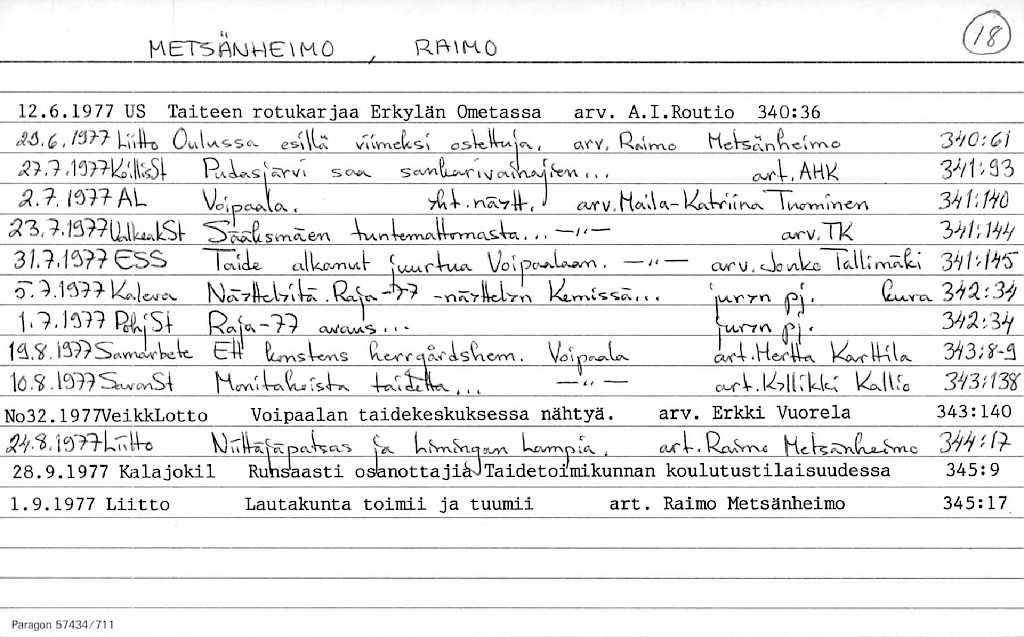 METSÄNHEIMO, RAIMO 18
12.6.1977 US Taiteen rotukarjaa Erkylän Ometassa arv. A.I.Routio 340:36
29.6.1977 Liitto Oulussa esillä viimeksi ostettuja. arv. Raimo Metsänheimo 340:61
27.7.1977 KoillisSt Pudasjärvi saa sankarivainajien... art. AHK 341:93
2.7.1977 AL Voipaala. yht.näytt. arv. Maila-Katriina Tuominen 341:140
23.7.1977 ValkeakSt Sääksmäen tuntemattomasta... -"- arv. TK 341:144
31.7.1977 ESS Taide alkanut juurtua Voipaalaan. -"- arv. Jouko Tallimäki 341:145
5.7.1977 Kaleva Näyttelyitä. Raja-77 -näyttelyn Kemissä... juryn pj. kuva 342:34
1.7.1977 PohjSt Raja-77 avaus... juryn pj. 342:34
19.8.1977 Samarbete Ett konstens herrgårdshem. Voipaala art. Hertta Karttila 343:8-9
10.8.1977 SavonSt Monitahoista taidetta... -"- art. Kyllikki Kallio 343:138
No32.1977 VeikkLotto Voipaalan taidekeskuksessa nähtyä. arv. Erkki Vuorela 343:140
24.8.1977 Liitto Niittäjäpatsas ja Limingan Lampia. art. Raimo Metsänheimo 344:17
28.9.1977 Kalajokil Runsaasti osanottajia Taidetoimikunnan koulutustilaisuudessa 345:9
1.9.1977 Liitto Lautakunta toimii ja tuumii art. Raimo Metsänheimo 345:17
Paragon 57434/711